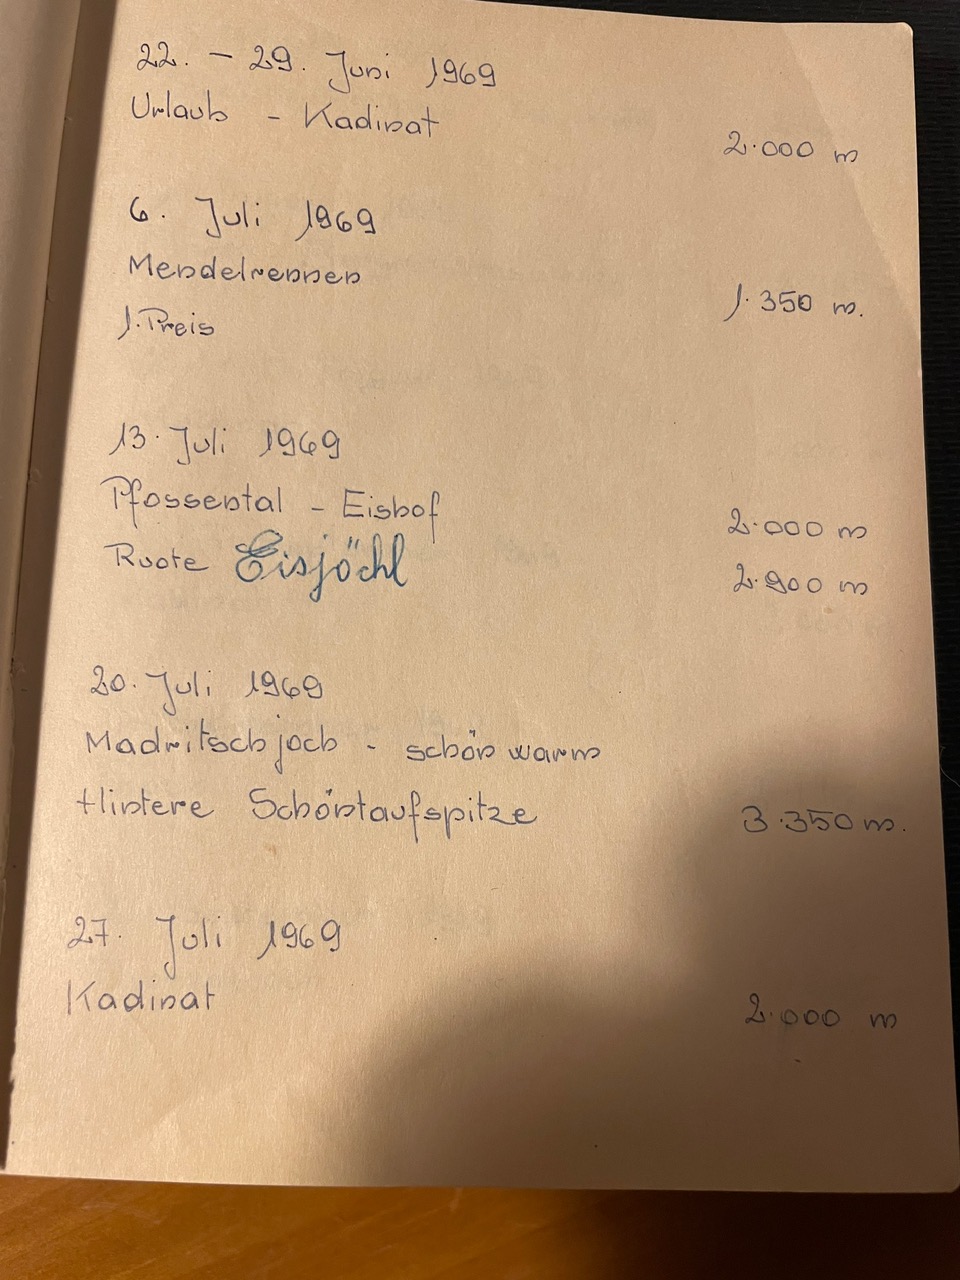 22. – 29. Juni 1969
Urlaub - Kadinat
2.000 m
6. Juli 1969
Mendelrennen
1.350 m.
1. Preis
13. Juli 1969
Pfossental - Eishof
2.000 m
Ruote Eisjöchl
2.900 m
20. Juli 1969
Madritschjoch - schön warm
Hintere Schöntaufspitze
3.350 m.
27. Juli 1969
Kadinat
2.000 m